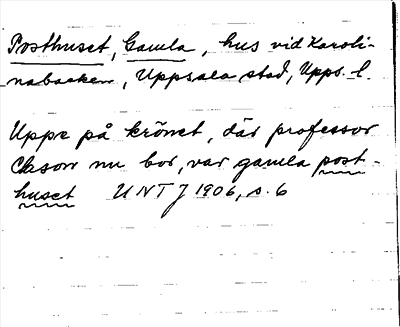 Posthuset, Gamla, hus vid Karoli-
nabacken, Uppsala stad, Upps. l.
Uppe på krönet, där professor
Clason nu bor, var gamla post-
huset UNT J 1906, s. 6